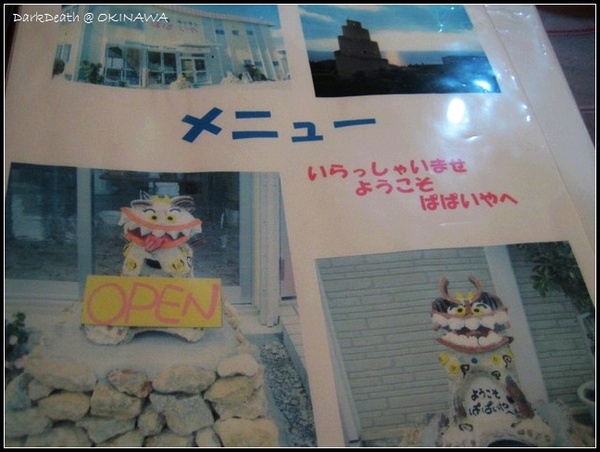 DarkDeath @ OKINAWA
メニュー
いらっしゃいませ
ようこそ
ぱぱいやへ
OPEN
ようこそ
ぱぱいやへ